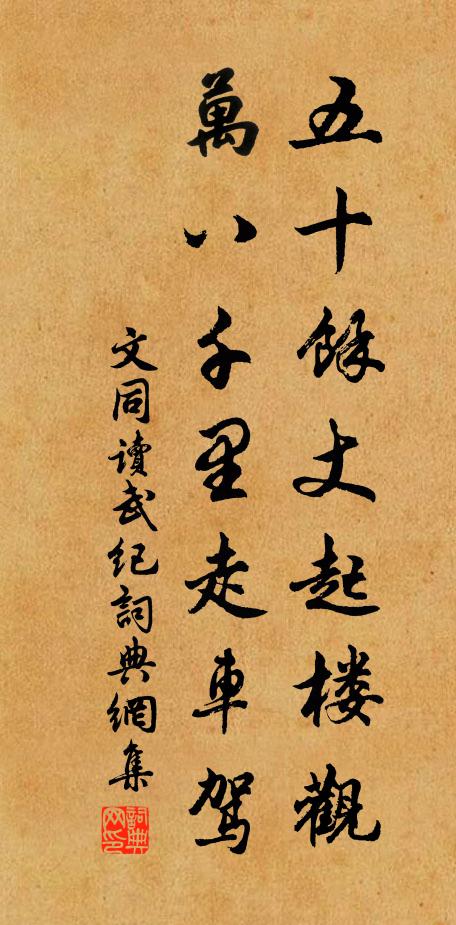 五十餘丈起楼觀
萬八千里走車駕
文同讀武纪詞典網集
詞典网印